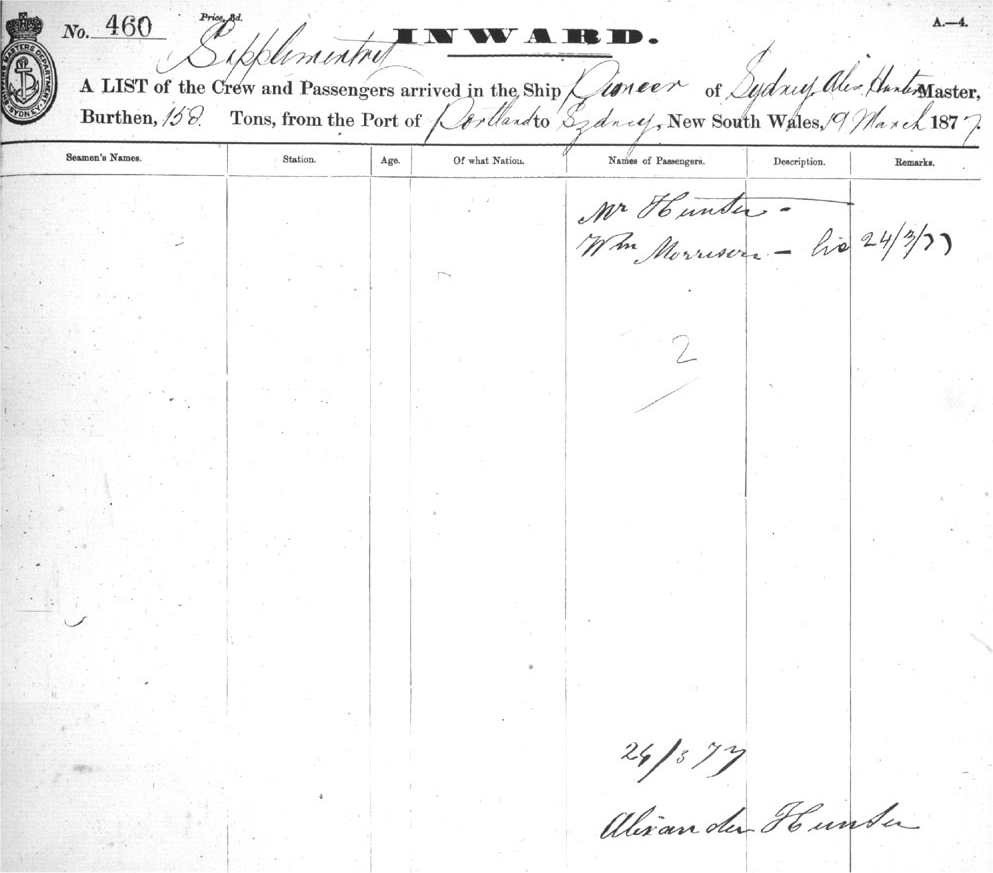 No. 460 Price, 8d. INWARD. A.—4.
Supplementry
A LIST of the Crew and Passengers arrived in the Ship Pioneer of Sydney, Alex Hunter Master,
Burthen, 158 Tons, from the Port of Portland to Sydney, New South Wales, 19 March 1877.
Seamen's Names. Station. Age. Of what Nation. Names of Passengers. Description. Remarks.
Mr Hunter -
Wm Morrison - 24/3/77
2
24/3 77
Alexander Hunter